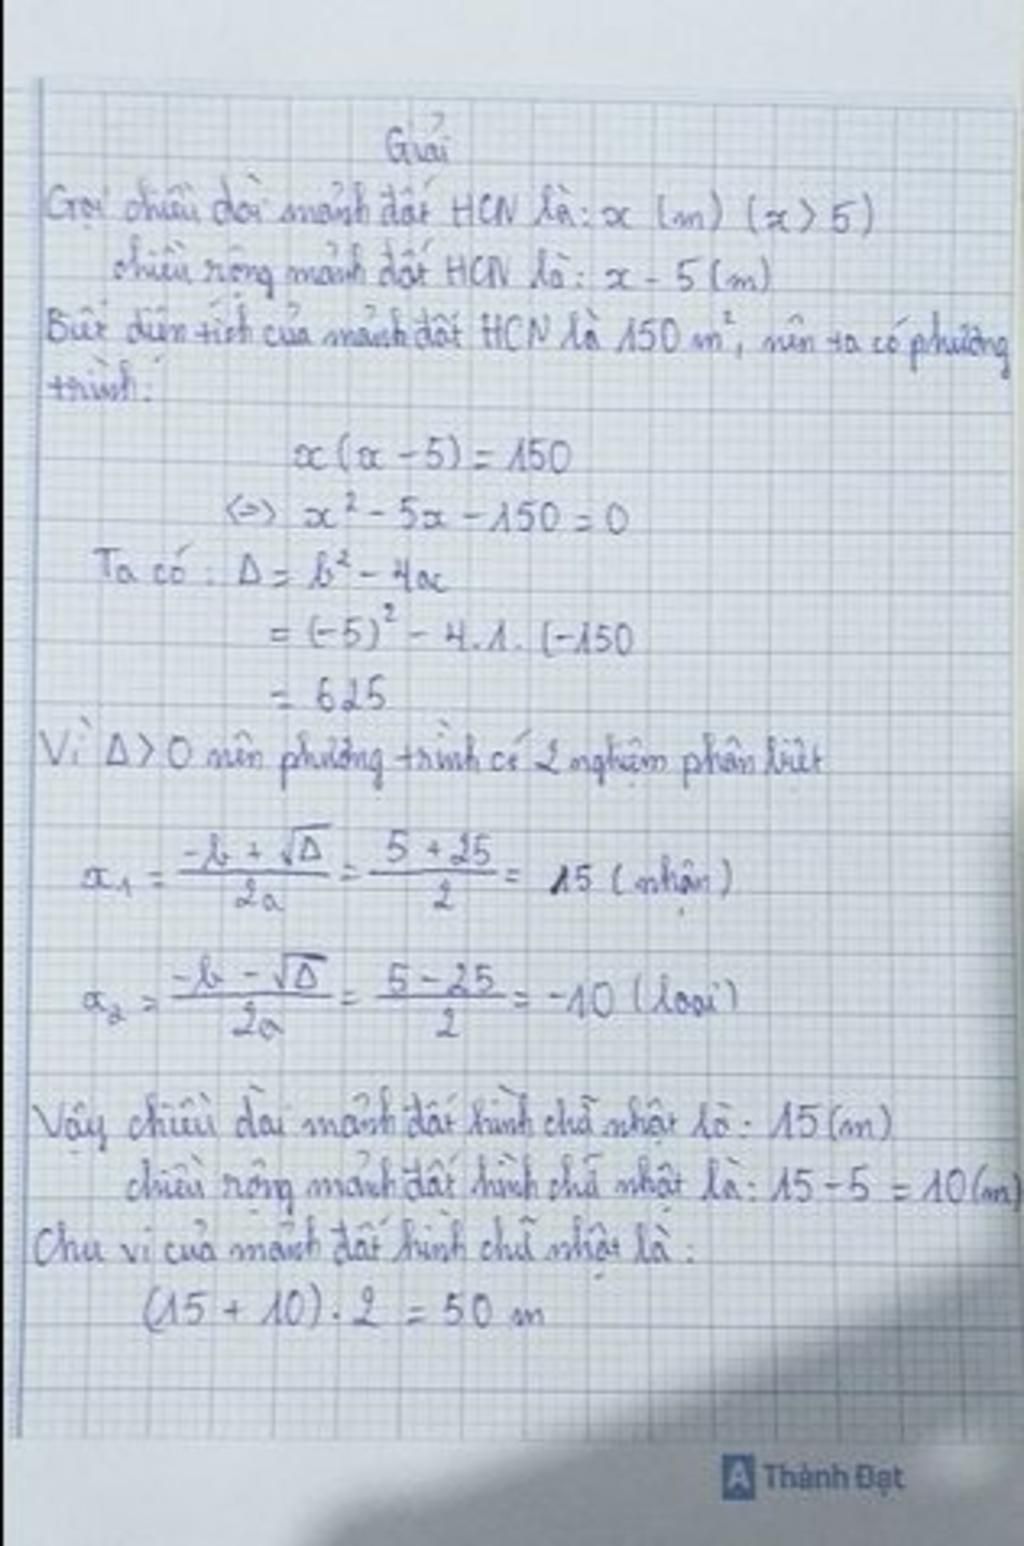 Giải
Gọi chiều dài mảnh đất HCN là: x (m) (x > 5)
chiều rộng mảnh đất HCN là: x - 5 (m)
Biết diện tích của mảnh đất HCN là 150 m², nên ta có phương
trình:
x(x - 5) = 150
<=> x² - 5x - 150 = 0
Ta có: Δ = b² - 4ac
= (-5)² - 4.1.(-150
= 625
Vì Δ > 0 nên phương trình có 2 nghiệm phân biệt
x₁ = (-b + √Δ)/2a = (5 + 25)/2 = 15 (nhận)
x₂ = (-b - √Δ)/2a = (5 - 25)/2 = -10 (loại)
Vậy chiều dài mảnh đất hình chữ nhật là: 15 (m)
chiều rộng mảnh đất hình chữ nhật là: 15 - 5 = 10 (m)
Chu vi của mảnh đất hình chữ nhật là:
(15 + 10) . 2 = 50 m
A Thành Đạt